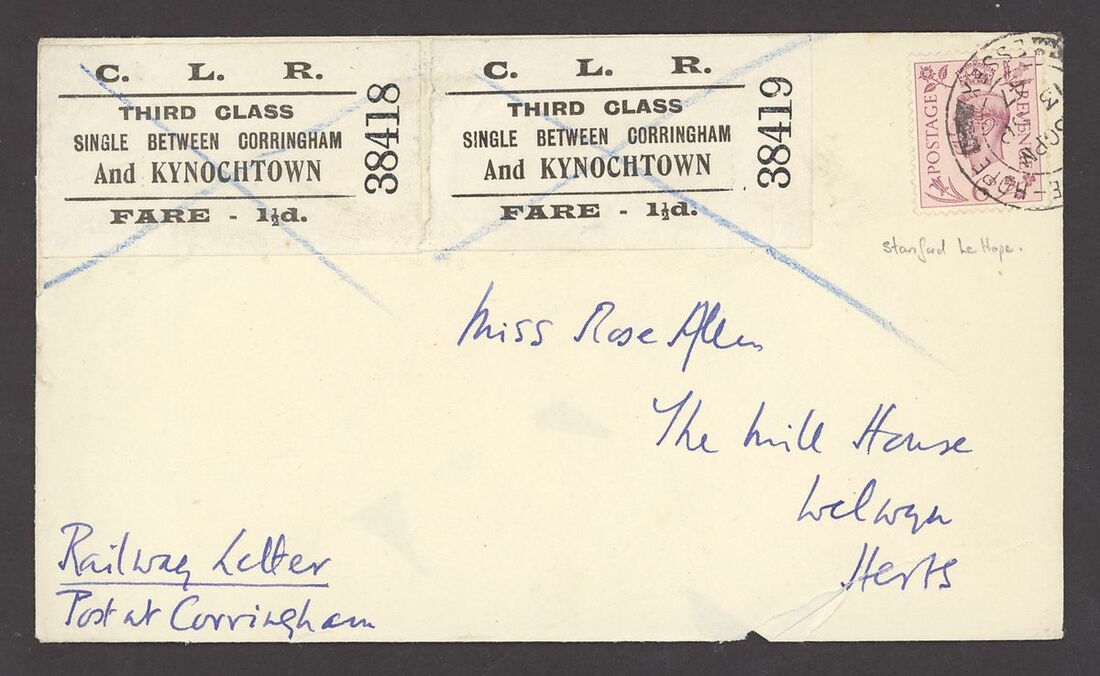 C. L. R.
THIRD CLASS
SINGLE BETWEEN CORRINGHAM
And KYNOCHTOWN
FARE - 1½d.
38418
C. L. R.
THIRD CLASS
SINGLE BETWEEN CORRINGHAM
And KYNOCHTOWN
FARE - 1½d.
38419
POSTAGE
REVENUE
Stanford Le Hope.
Miss Rose Allen
The Mill House
Welwyn
Herts
Railway Letter
Post at Corringham